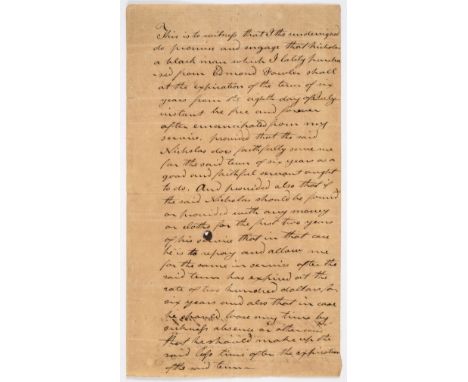 This is to witness that I the undersigned
do promise and engage that Nicholas
a black man which I lately purcha
sed from Edmond Fowler shall
at the expiration of the term of six
years from the eighth day of July
instant be free and forever
after emancipated from my
service. provided that the said
Nicholas does faithfully serve me
for the said term of six years as a
good and faithful servant ought
to do. And provided also that if
the said Nicholas should be found
or provided with any money
or cloths for the first two years
of his service that in that case
he is to repay and allow me
for the same in service after the
said term has expired at the
rate of two hundred dollars for
six years and also that in case
he should loose any time by
sickness absence or otherwise
that he should make up the
said loss time after the expiration
of the said term